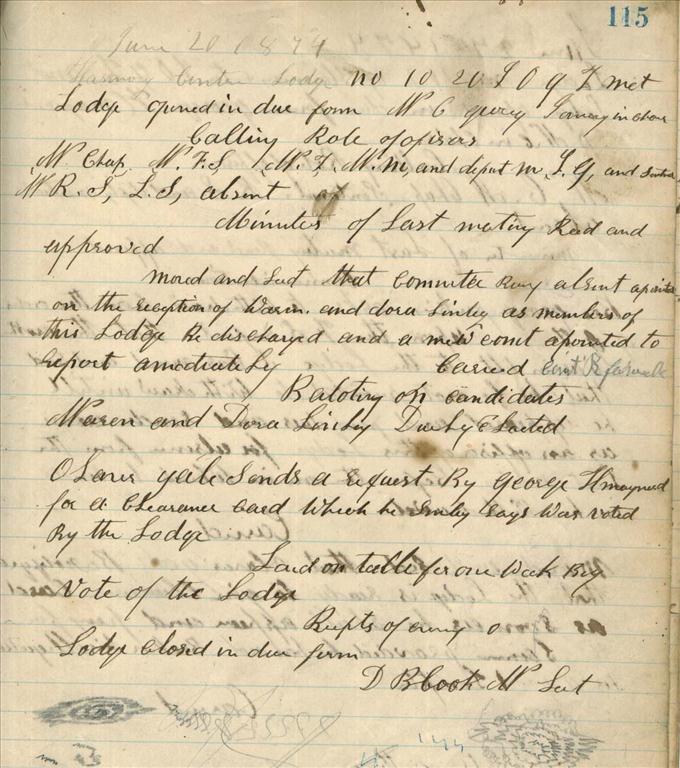 115
June 20 1874
Harmony Center Lodge no 10 20 I O g T met
Lodge opened in due form W C gerry in chair
Calling Role of opisers
W Chap. W. F. S, W. T. W. M, and deput m, I. G, and
W R. S, L. S, absent
Minutes of Last meting Read and
approved
moved and Sect that Committee Being absent apointed
on the reception of Waren. and dora Linsey as members of
this Lodge Be discharged and a new comt apointed to
report amediately Carried comt Reported favorable
Baloting on candidates
Waren and Dora Linsey Duely Elected
Yale Sends a request By George H maynard
for a Clearance Card Which he Says Was voted
By the Lodge
Laid on table for one Week By
Vote of the Lodge
Recpts of evning 0
Lodge Closed in due form
D B Cook W Sect
144